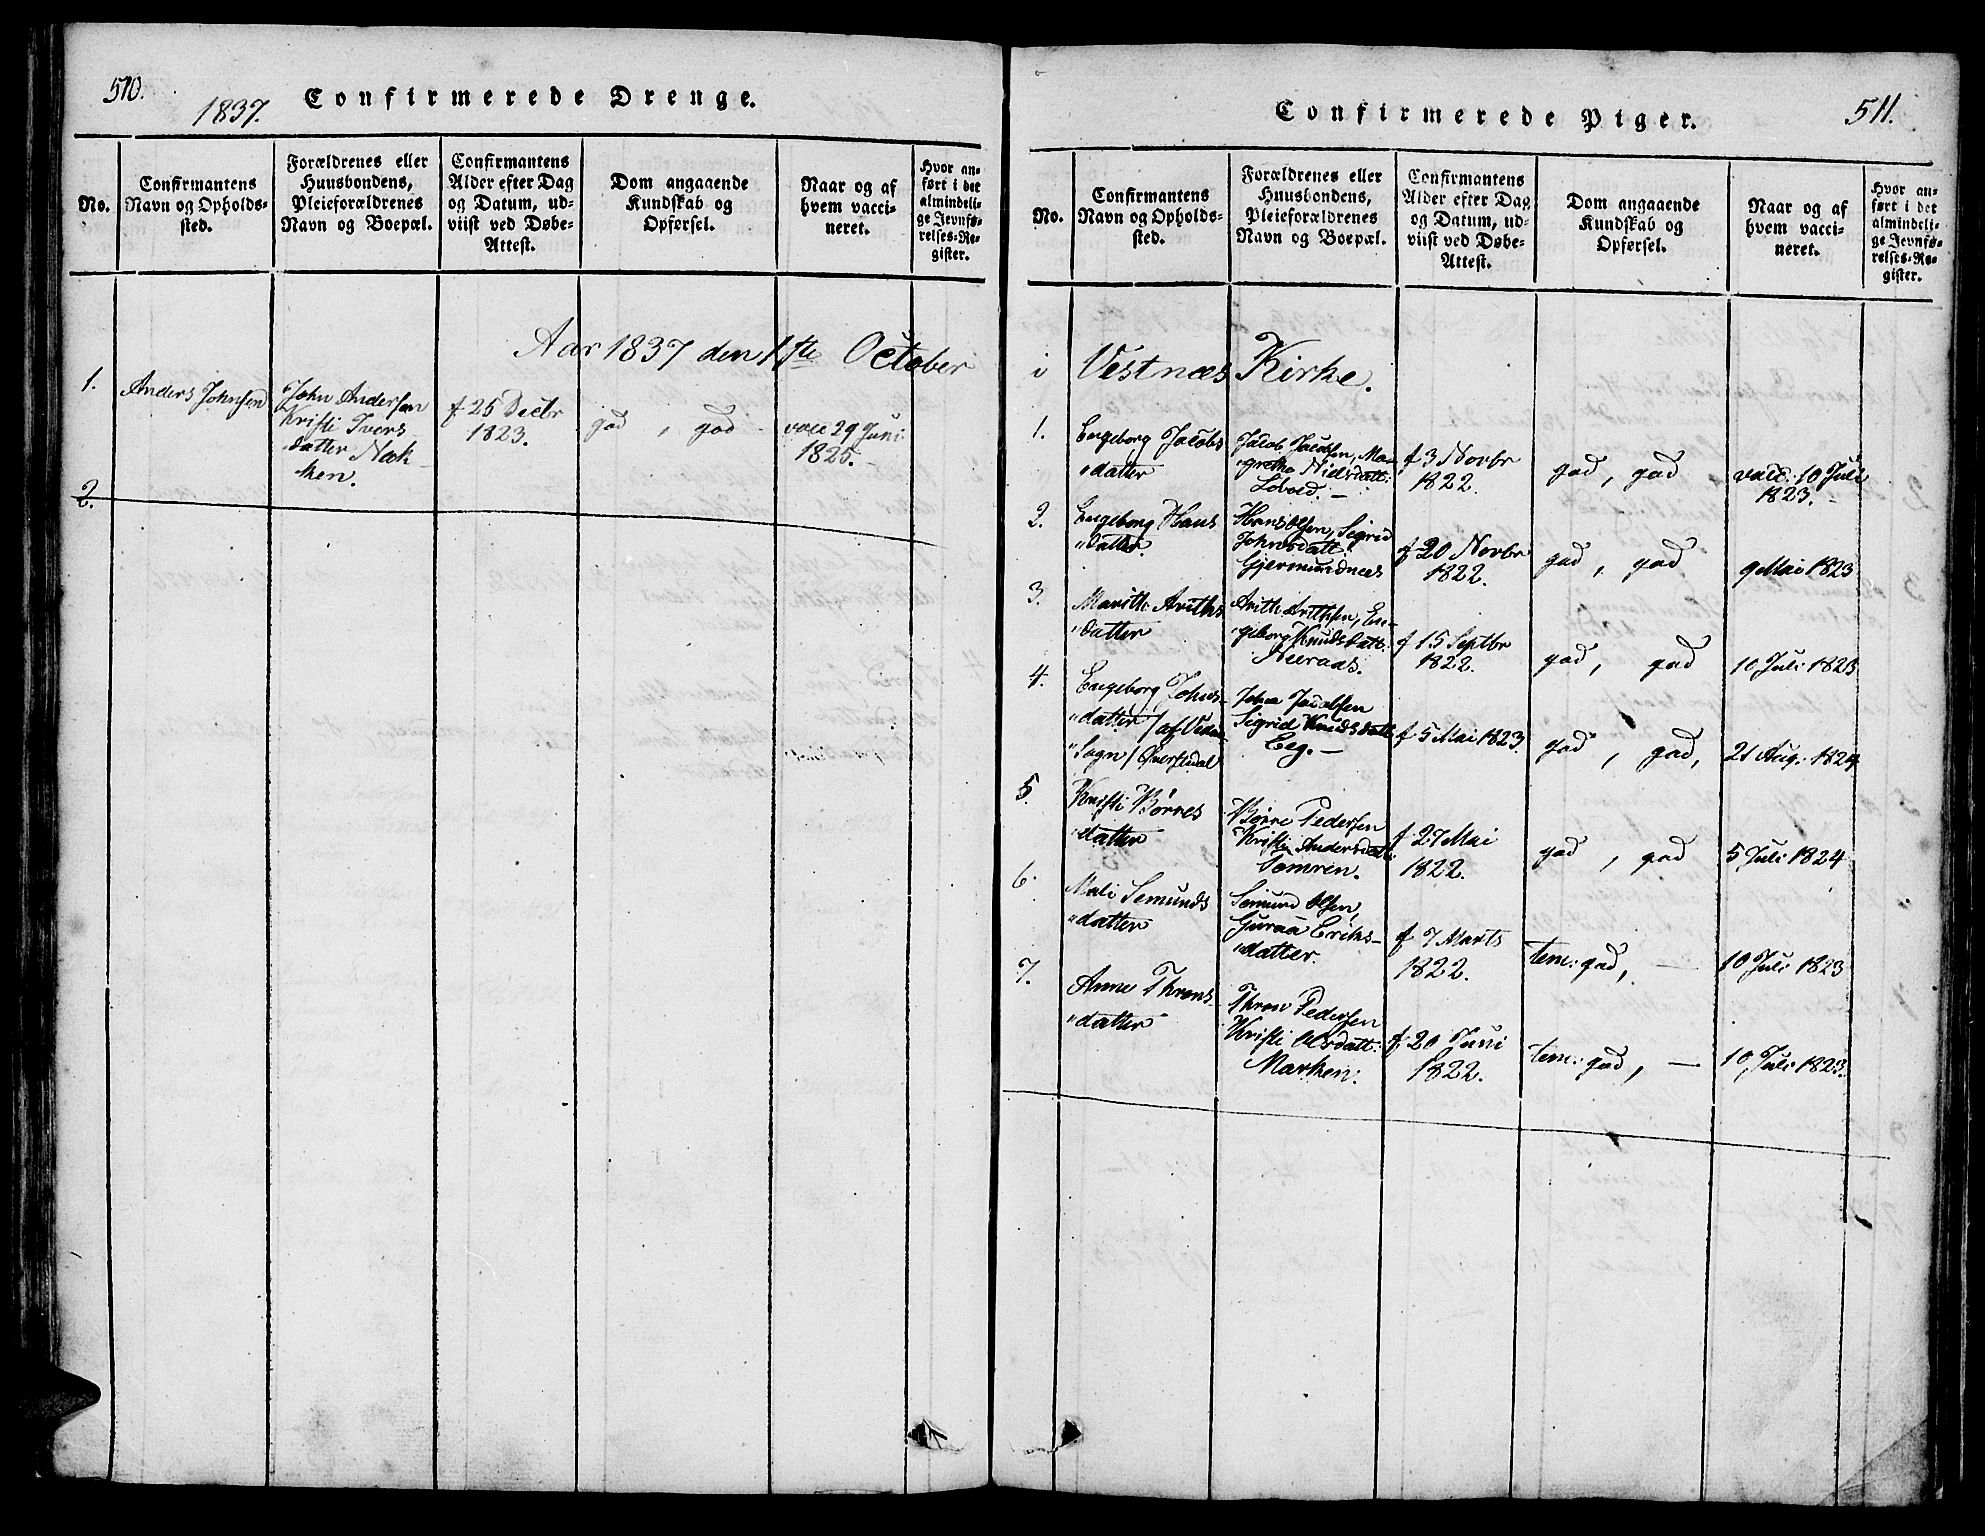 510.
1837. Confirmerede Drenge.
No.
Confirmantens
Navn og Opholds-
sted.
Forældrenes eller
Huusbondens,
Pleieforældrenes
Navn og Boepæl.
Confirmantens
Alder efter Dag
og Datum, ud-
viist ved Døbe-
Attest.
Dom angaaende
Kundskab og
Opførsel.
Naar og af
hvem vacci-
neret.
Hvor an-
ført i det
almindeli-
ge Jevnfø-
relses-Re-
gister.
Aar 1837 den 1ste October
1.
Anders Johnsen
John Andersen
Kristi Ivers
datter Nak-
ken.
f. 25 Decbr
1823.
god, god
vacc 29 Juni
1825.
2.
Confirmerede Piger.
511.
No.
Confirmantens
Navn og Opholds-
sted.
Forældrenes eller
Huusbondens,
Pleieforældrenes
Navn og Boepæl.
Confirmantens
Alder efter Dag
og Datum, ud-
viist ved Døbe-
Attest.
Dom angaaende
Kundskab og
Opførsel.
Naar og af
hvem vacci-
neret.
Hvor an-
ført i det
almindeli-
ge Jevnfø-
relses-Re-
gister.
i Vestnæs Kirke.
1.
Engeborg Jacobs
"datter
Jacob Jacobsen, Ma-
"grethe Nielsdatt:
f 3 Novbr
1822.
god, god
vacc: 10 Juli
1823.-
2.
Engeborg Hans
"datter.
Hans Olsen, Sigrid
Johnsdatt:
Gjermundnæs
f 20 Novbr
1822.
god, god
9 Mai 1823
3.
Marith Ariths
"datter
Arith Arithsen, En-
"geborg Knudsdatt:
Neeraas.
f 15 Septbr
1822.
god, god
10 Juli 1823
4.
Engeborg Johns-
"datter / af
"Sogn /
John Jacobsen
Sigrid Knudsdatt
Eeg.-
f 5 Mai 1823.
god, god,
21 Aug: 1824
5.
Kristi Børres
"datter
Børre Pedersen
Kristi Andersdatt:
f 27 Mai
1822.
god, god
5 Juli 1824
6.
Mali Semunds
"datter
Semund Olsen,
Guraa Eriks-
"datter.
f 7 Marts
1822.
tem: god, -
10 Juli 1823
7.
Anne Throns-
"datter
Thron Pedersen
Kristi Olsdatt:
Marken.
f. 20 Juni
1822.
tem: god, -
10 Juli 1823.